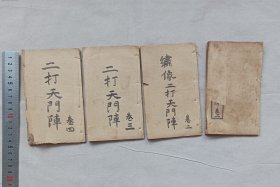 二打天門陣
卷四
二打天門陣
卷三
繡像二打天門陣
卷二